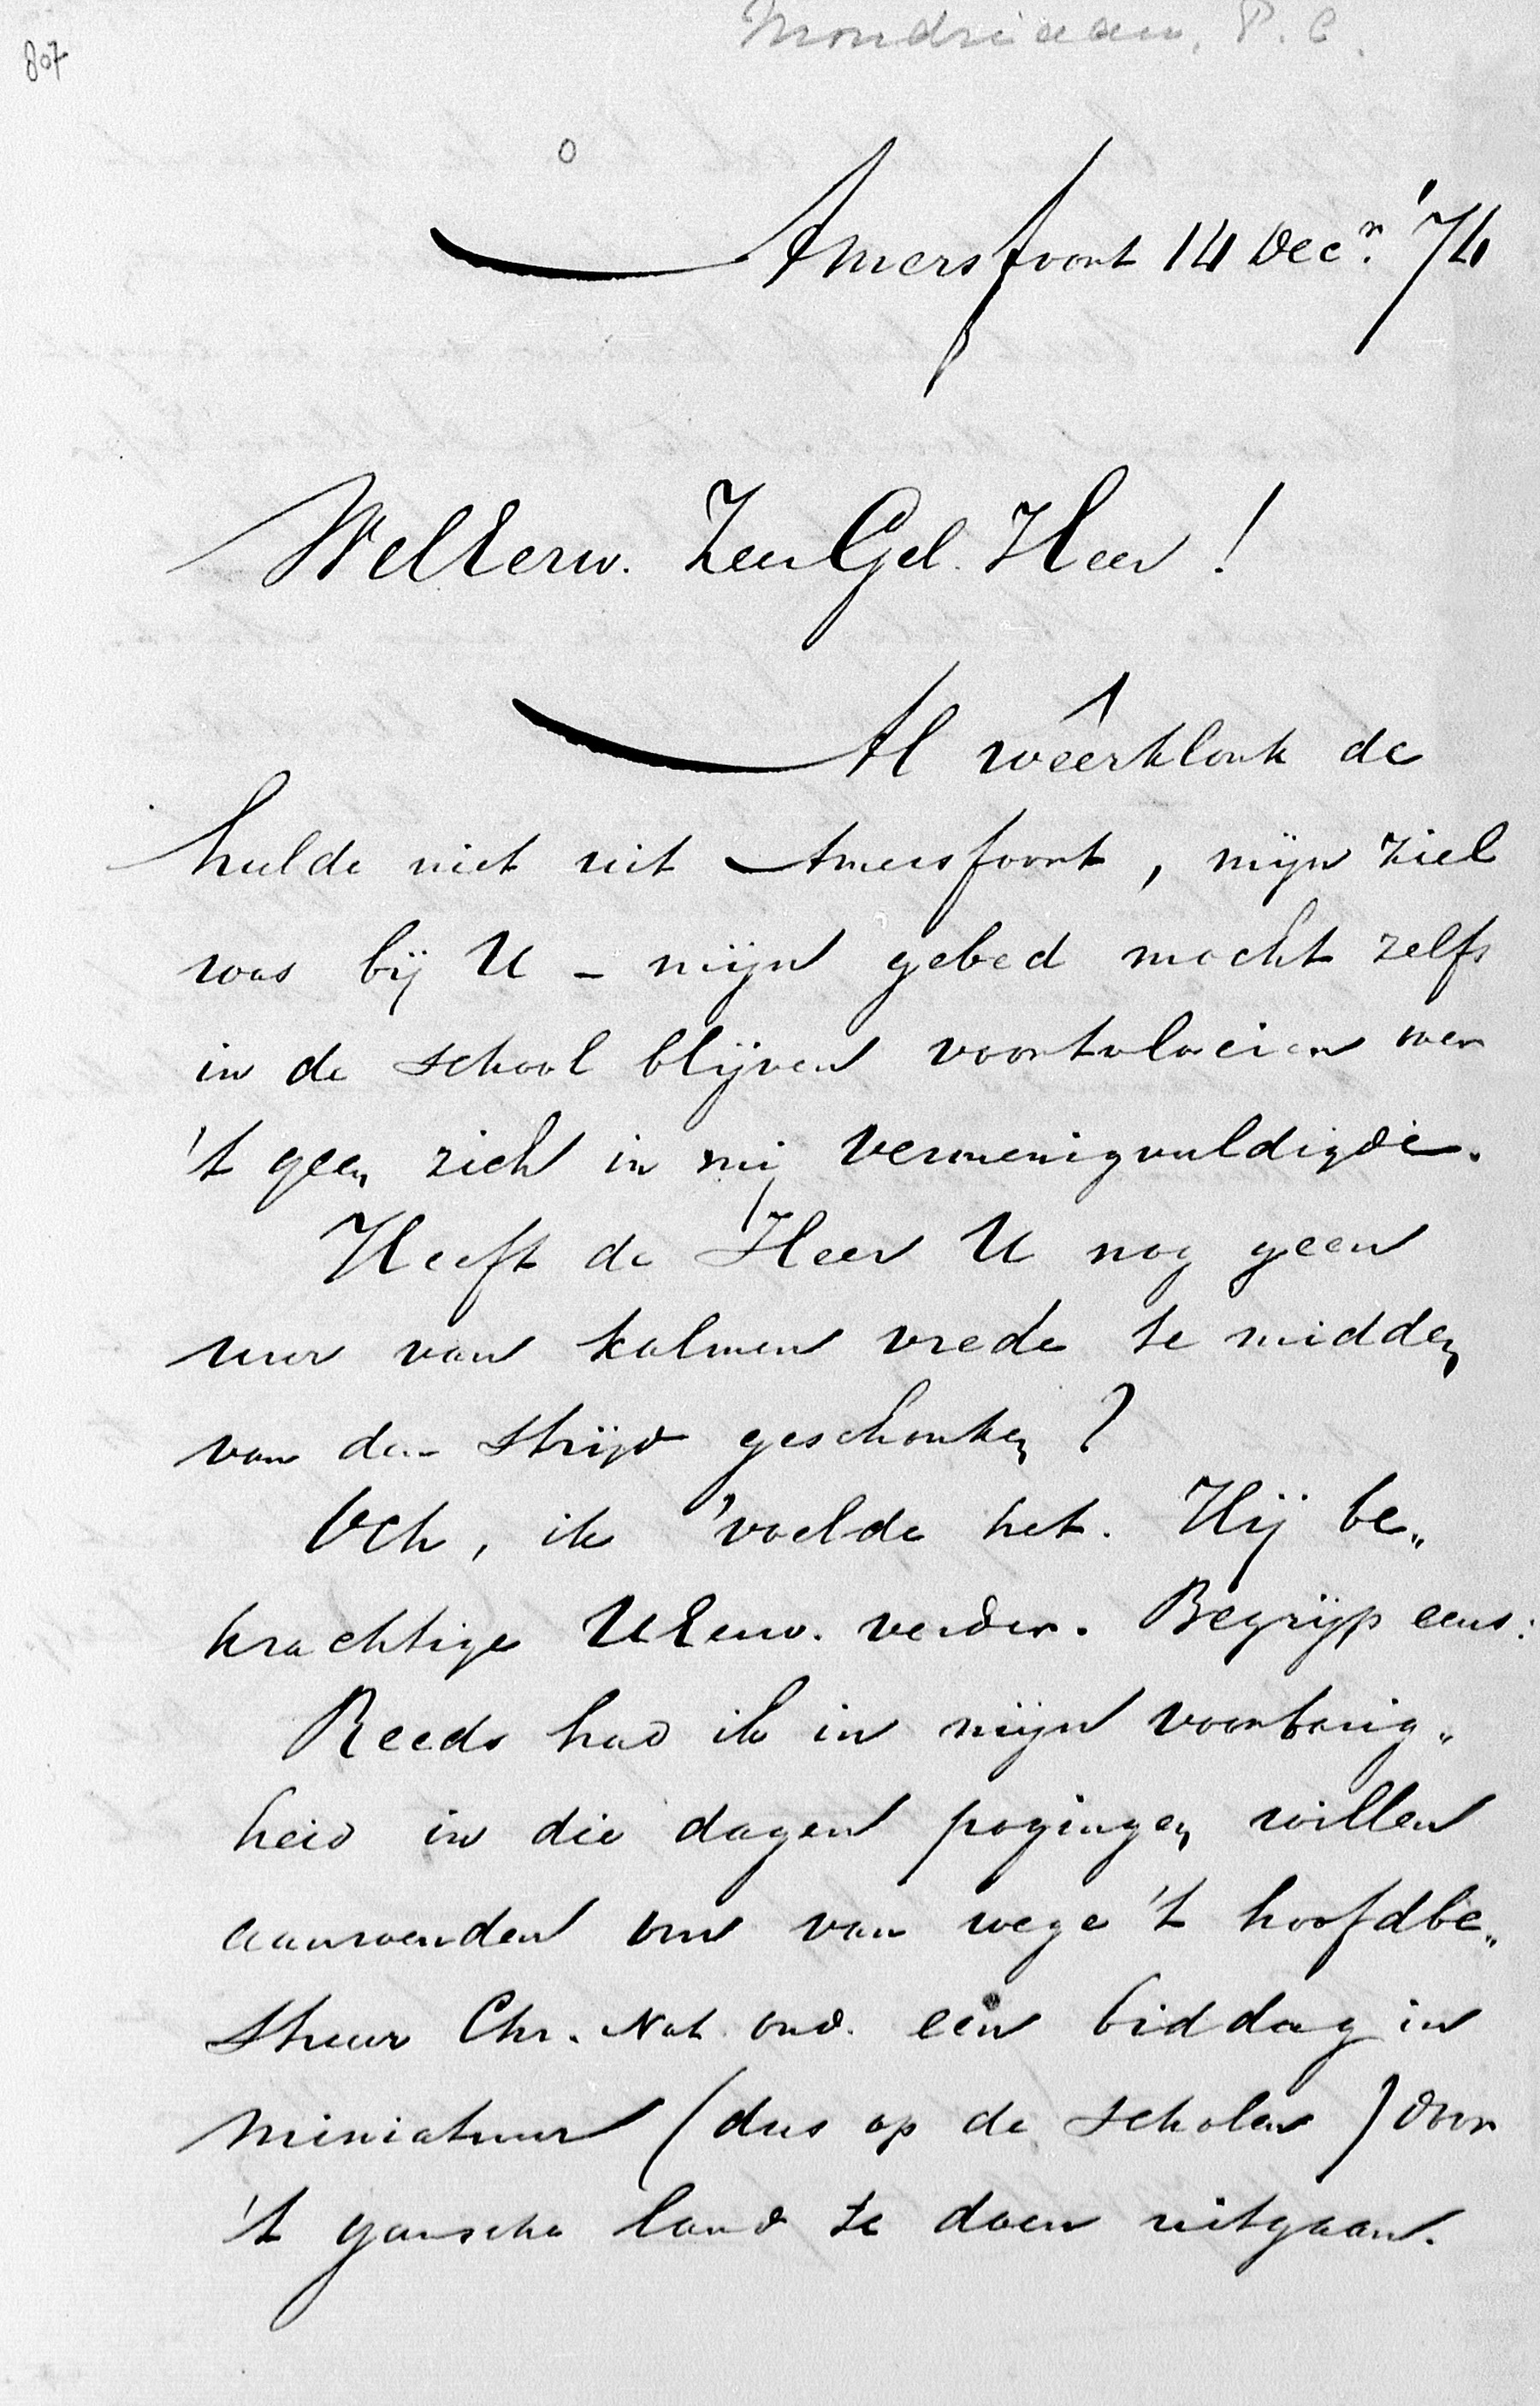 Mondriaan, P. C.
807
Amersfoort 14 Dec.r '74
WelEerw. ZeerGel. Heer!
Al wêerklonk de
hulde niet uit Amersfoort, mijn ziel
was bij U – mijn gebed mocht zelfs
in de school blijven voortvloeien over
't geen zich in mij vermenigvuldigde.
Heeft de Heer U nog geen
uur van kalmen vrede te midden
van den strijd geschonken?
Och, ik voelde het. Hij be„
krachtige UEerw. verder. Begrijp eens:
Reeds had ik in mijn voorbarig„
heid in die dagen pogingen willen
aanwenden om van wege 't hoofdbe„
stuur Chr. Nat. Ond. een biddag in
miniatuur (dus op de scholen) door
't gansche land te doen uitgaan.